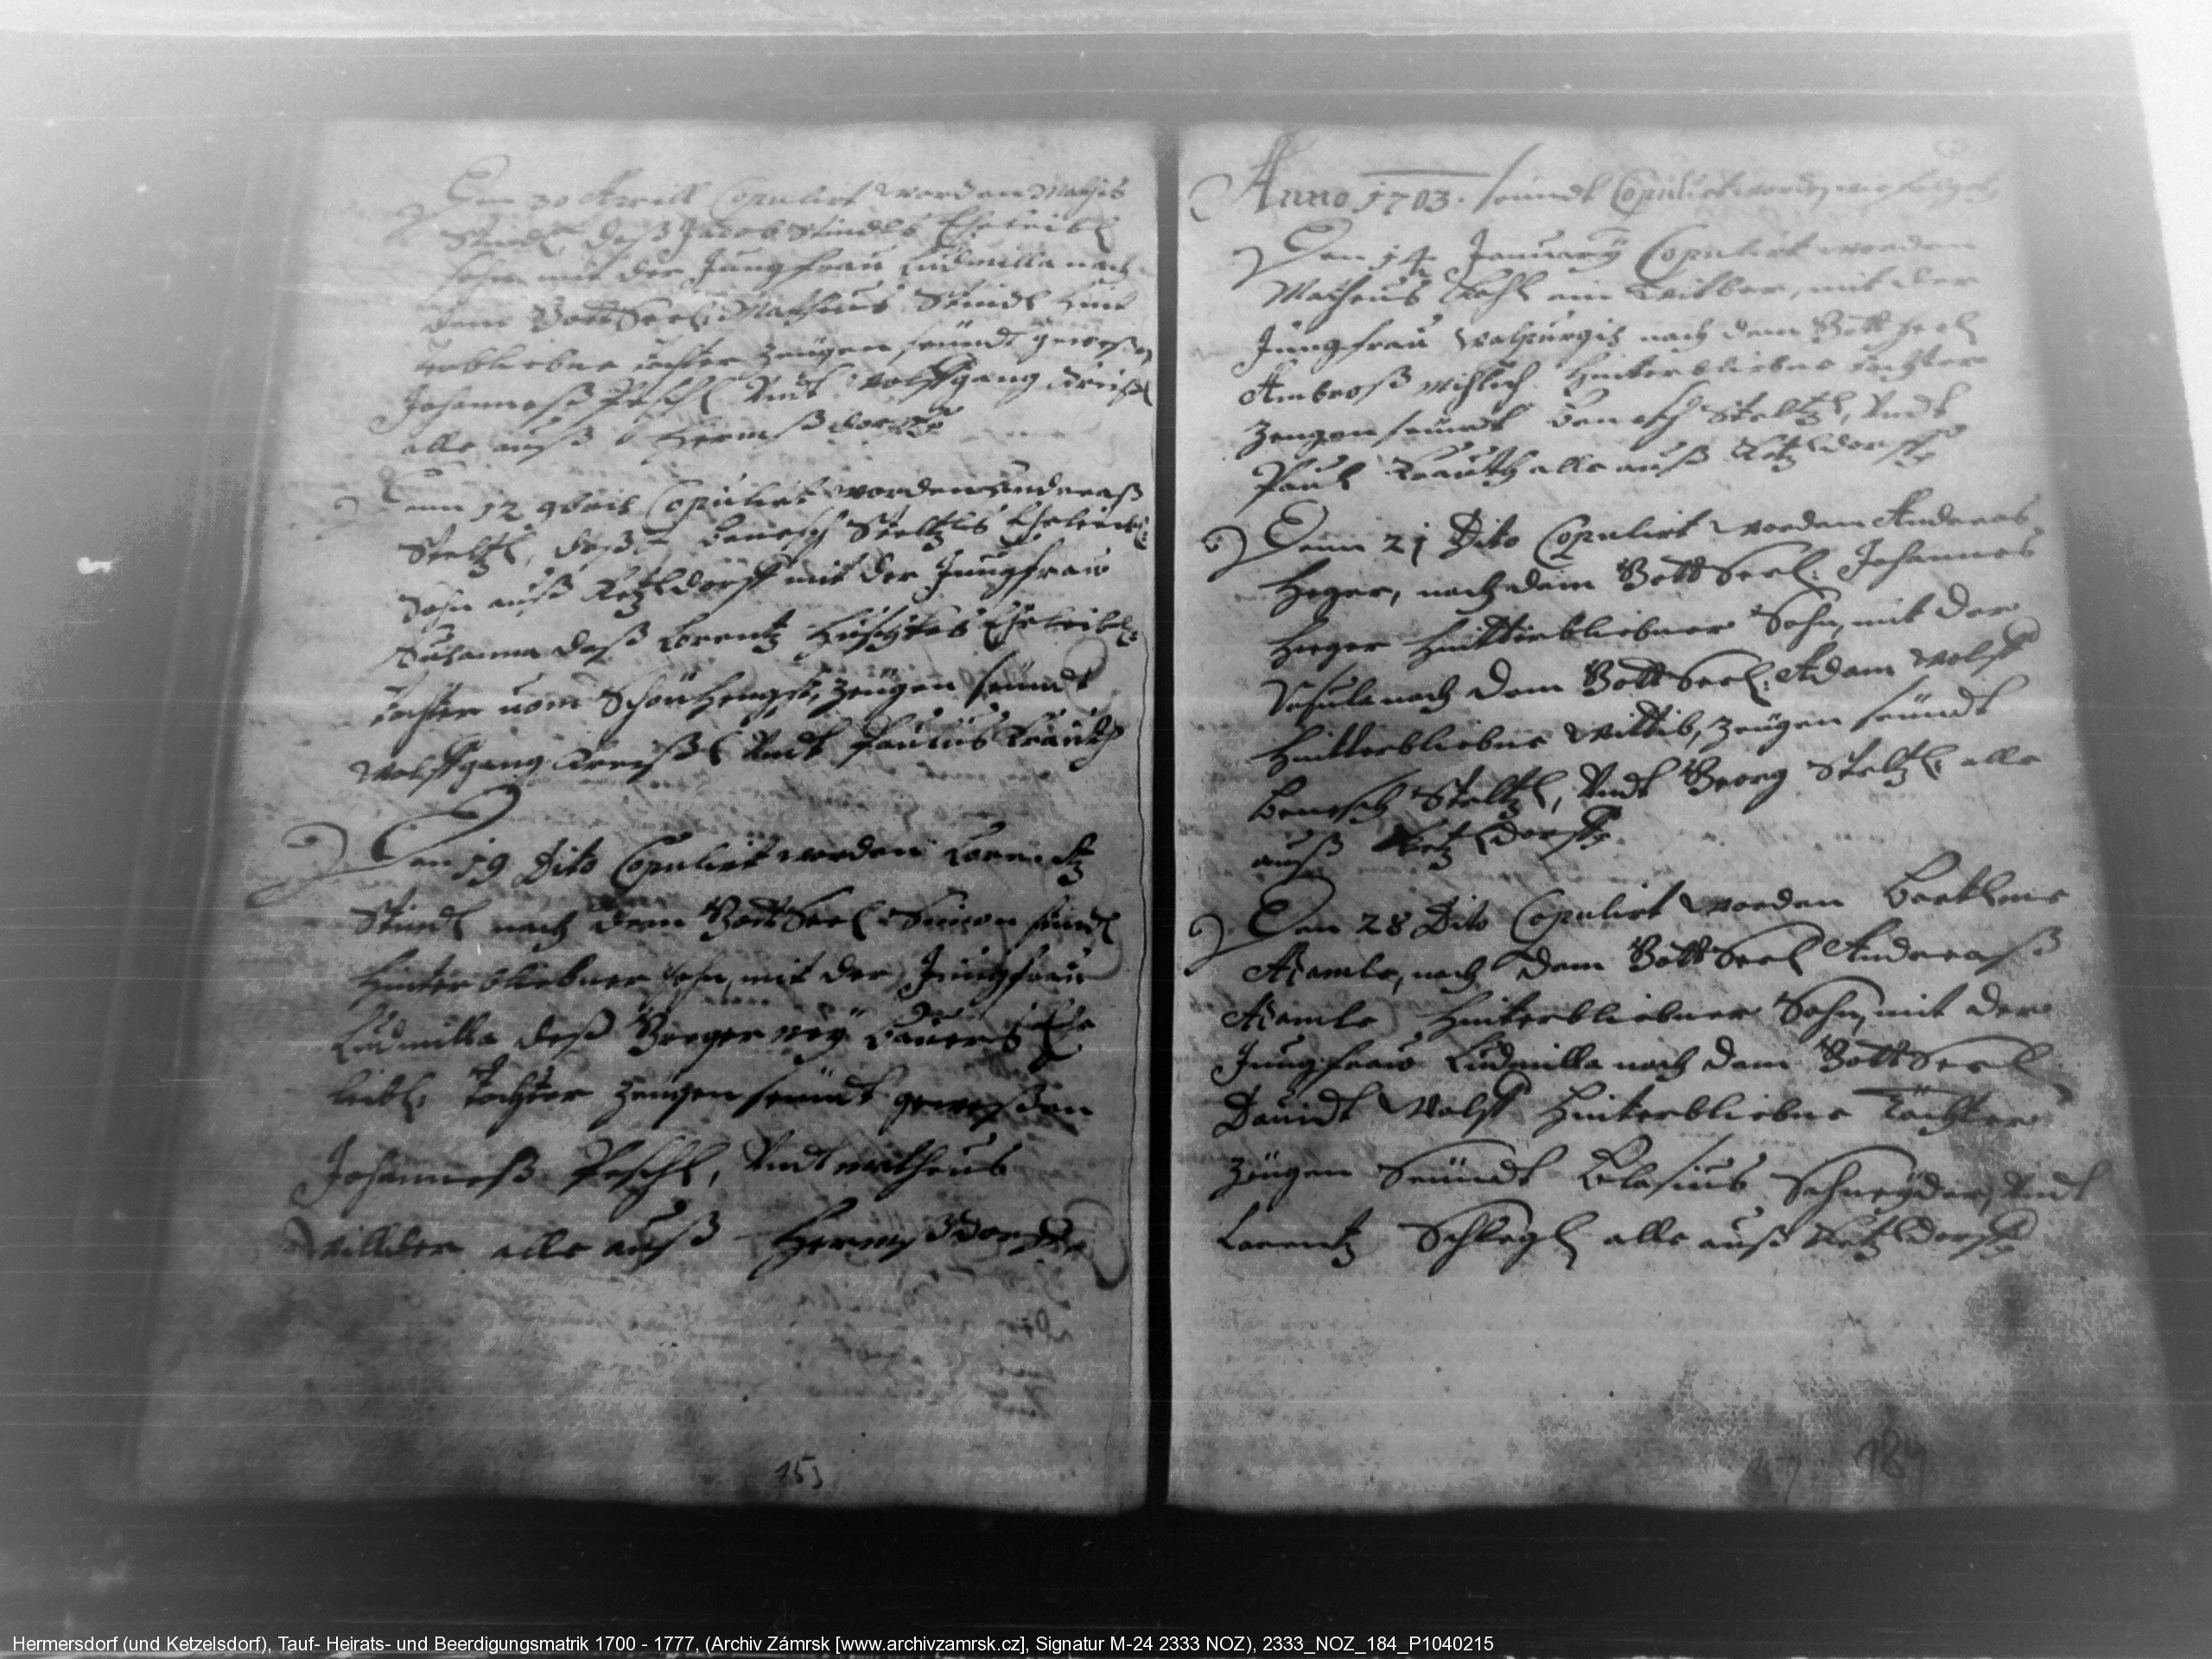 Den 30 Aprill Copulirt worden Mathes
Stindl, deß Jacob Stindls Eheleibl
sohn mit der Jungfrau Ludmilla nach
dem Gott Seel: Matheus Stindl hint
terbliebne tochter Zeügen seündt geweßen
Johanneß Peschl Undt Wolffgang Kreißl
alle auß Hermßdorff
Den 12 9bris Copulirt worden Andreaß
Steltzl, deß Benesch Steltzls Eheleibl:
Sohn auß Ketzldorff mit der Jungfrau
Susanna deß Lorentz Eheleibl:
tochter vom Schönhengst, Zeügen seündt
Wolffgang Kreißl Undt Paulus Krauth
Den 19 Dito Copulirt worden Lorentz
Stindl nach dem Gott Seel Simon Stindl
hinterbliebner sohn, mit der Jungfrau
Ludmilla deß Ehe
leibl: tochter Zeügen seündt geweßen
Johanneß Peschl, Undt Matheus
Willder alle auß Hermßdorff
153
Anno 1703. seundt Copulirt worden wie folget
Den 14 January Copulirt worden
Matheus ein Wittber, mit der
Jungfrau Walpurgis nach dem Gott Seel
Ambroß hinterbliebne tochter
Zeugen seundt Benesch Steltzl, Undt
Paul Krauth alle auß Ketzldorff
Denn 21 Dito Copulirt worden Andreas
Heger, nach dem Gott Seel: Johannes
Heger hintterbliebner Sohn, mit der
Ursula nach dem Gott Seel: Adam Wolff
hintterbliebne Wittib, Zeügen seündt
Benesch Steltzl, Undt Georg Steltzl alle
auß Ketzldorff
Den 28 Dito Copulirt worden Bartlme
Adamle, nach dem Gott Seel Andreaß
Adamle hinterbliebner Sohn, mit der
Jungfrau Ludmilla nach dem Gott Seel
Davidt Wolff hinterbliebne Tochter
Zeügen Seündt Blasius Schneyder, Undt
Lorentz Schlegl alle auß Ketzldorff
184
Hermersdorf (und Ketzelsdorf), Tauf- Heirats- und Beerdigungsmatrik 1700 - 1777, (Archiv Zámrsk [www.archivzamrsk.cz], Signatur M-24 2333 NOZ), 2333_NOZ_184_P1040215